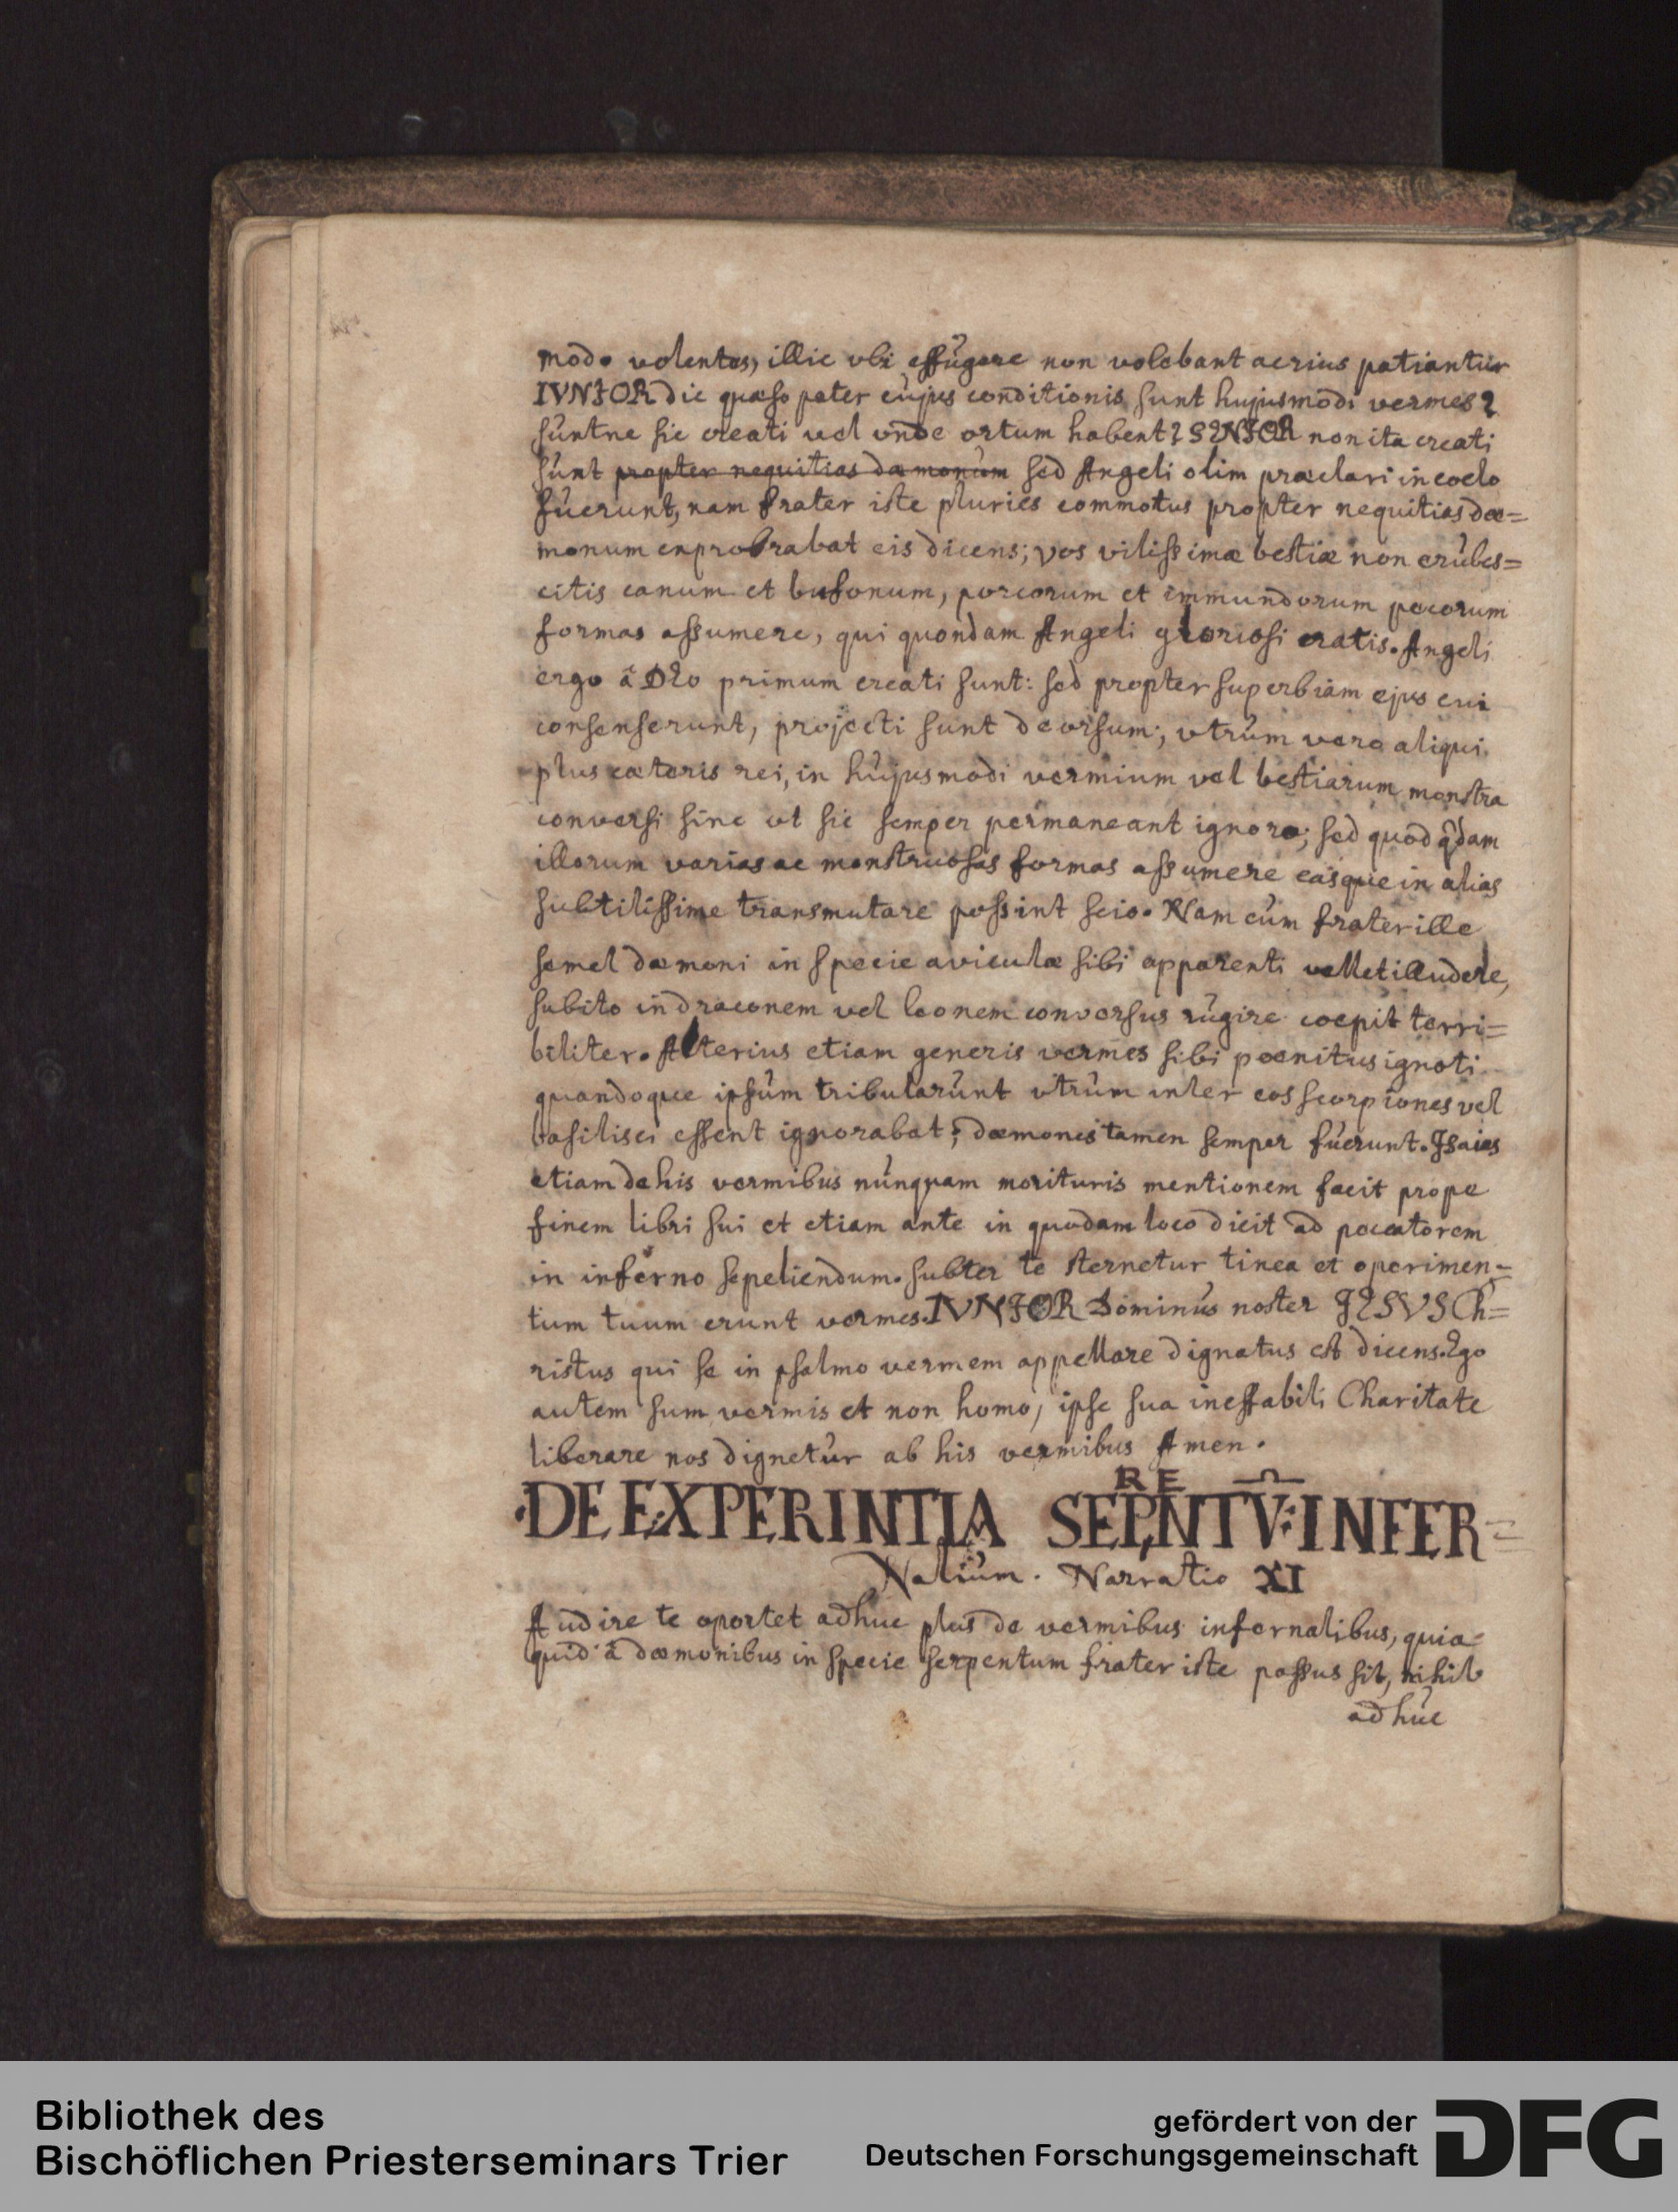 modo volentes, illic ubi effugere non volebant acrius patiantur
IVNIOR dic quæso pater cujus conditionis sunt hujusmodi vermes?
suntne sic creati vel unde ortum habent? SENIOR non ita creati
sunt propter nequitias dæmonum sed Angeli olim præclari in coelo
fuerunt, nam frater iste pluries commotus propter nequitias dæ=
monum exprobrabat eis dicens; vos vilissimæ bestiæ non erubes=
citis canum et bufonum, porcorum et immundorum pecorum
formas assumere, qui quondam Angeli gloriosi eratis. Angeli
ergo â DEo primum creati sunt: sed propter superbiam ejus cui
consenserunt, projecti sunt deorsum; vtrum vero aliqui
plus cæteris rei, in hujusmodi vermium vel bestiarum monstra
conversi sine ut sic semper permaneant ignoro; sed quod qdam
illorum varias ac monstruosas formas assumere easque in alias
subtilissime transmutare possint scio. Nam cum frater ille
semel dæmoni in specie aviculæ sibi apparenti vellet illudere,
subito in draconem vel leonem conversus rugire coepit terri=
biliter. Alterius etiam generis vermes sibi poenitus ignoti
quandoque ipsum tribularunt vtrum inter eos scorpiones vel
basilisci essent ignorabat; dæmones tamen semper fuerunt. Isaias
etiam de his vermibus nunquam morituris mentionem facit prope
finem libri sui et etiam ante in quodam loco dicit ad peccatorem
in inferno sepeliendum. subter te sternetur tinea et operimen=
tum tuum erunt vermes. IVNIOR Dominus noster JESVS Ch=
ristus qui se in psalmo vermem appellare dignatus est dicens. Ego
autem sum vermis et non homo, ipse sua ineffabili Charitate
liberare nos dignetur ab his vermibus Amen.
RE
·DE EXPERINTIA SEPNTV: INFER=
Nalium. Narratio XI
Audire te oportet adhuc plus de vermibus infernalibus, quia
quid â dæmonibus in specie serpentum frater iste passus sit, nihil
adhuc
Bibliothek des
Bischöflichen Priesterseminars Trier
gefördert von der
Deutschen Forschungsgemeinschaft
DFG